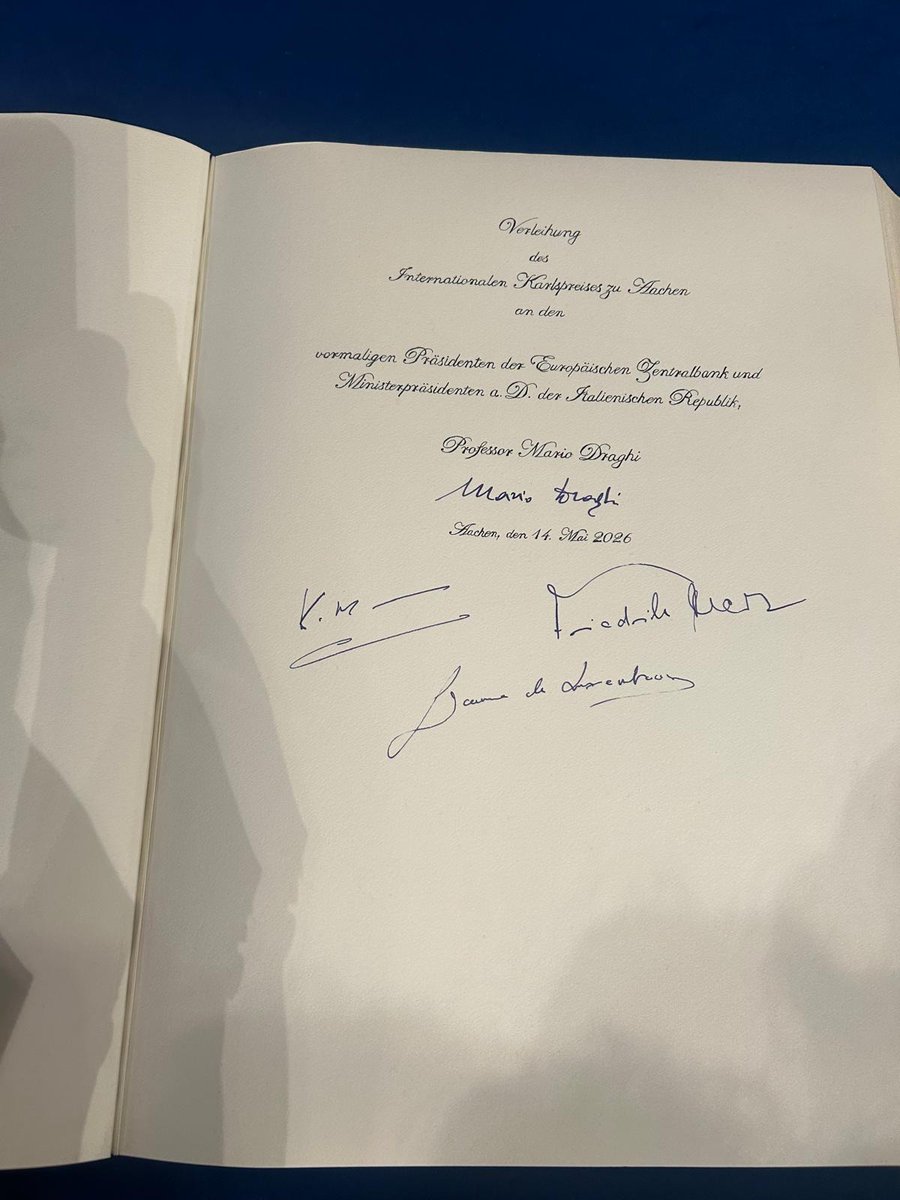 Verleihung
des
Internationalen Karlspreises zu Aachen
an den
vormaligen Präsidenten der Europäischen Zentralbank und
Ministerpräsidenten a. D. der Italienischen Republik,
Professor Mario Draghi
Mario Draghi
Aachen, den 14. Mai 2026
K. M
Friedrich Merz
de Luxembourg